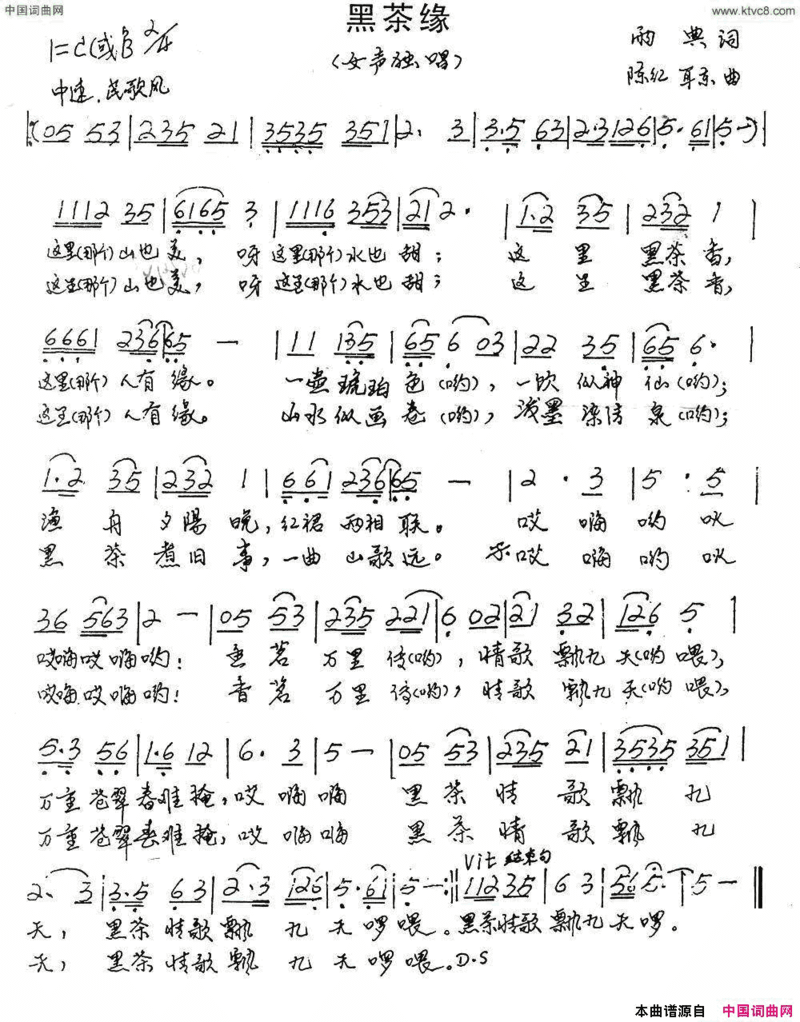 中国词曲网
www.ktvc8.com
黑茶缘
1=C(或B) 2/4
(女声独唱)
雨典词
中速.民歌风
陈红 耳东曲
05 53 | 235 21 | 3535 351 | 2. 3 | 3.5 63 | 2.3 126 | 5. 61 | 5 - ) |
1112 35 | 6165 3 | 1116 353 | 21 2. | 1.2 35 | 232 1 |
这里(那个)山也美, 呀 这里(那个)水也甜; 这里 黑茶香,
这里(那个)山也美, 呀 这里(那个)水也甜; 这里 黑茶香,
6661 23665 - | 11 135 | 65 6 03 | 22 35 | 65 6. |
这里(那个)人有缘。 一壶琥珀色(哟), 一饮似神仙(哟);
这里(那个)人有缘。 山水似画卷(哟), 浅墨染清泉(哟);
1.2 35 | 232 1 | 661 23665 - | 2. 3 | 5. 5 |
渔舟夕陽晚, 红裙两相联。 哎嗨哟
黑茶煮旧事, 一曲山歌远。 哎嗨哟
36 563 | 2 - | 05 53 | 235 221 | 6 02 | 21 32 | 126 5 |
哎嗨哎嗨哟! 香茗万里传(哟), 情歌飘九天(哟喂),
哎嗨哎嗨哟! 香茗万里传(哟), 情歌飘九天(哟喂),
5.3 56 | 1.6 12 | 6. 3 | 5 - | 05 53 | 235 21 | 3535 351 |
万重苍翠春难掩, 哎嗨嗨 黑茶情歌飘九
万重苍翠春难掩, 哎嗨嗨 黑茶情歌飘九
Vit 结束句
2. 3 | 3.5 63 | 2.3 126 | 5. 61 | 5 - :|| 11235 | 63 | 56 6. | 5 - ||
天, 黑茶情歌飘九天啰喂。黑茶情歌飘九天啰。
天, 黑茶情歌飘九天啰喂。D.S
本曲谱源自 中国词曲网